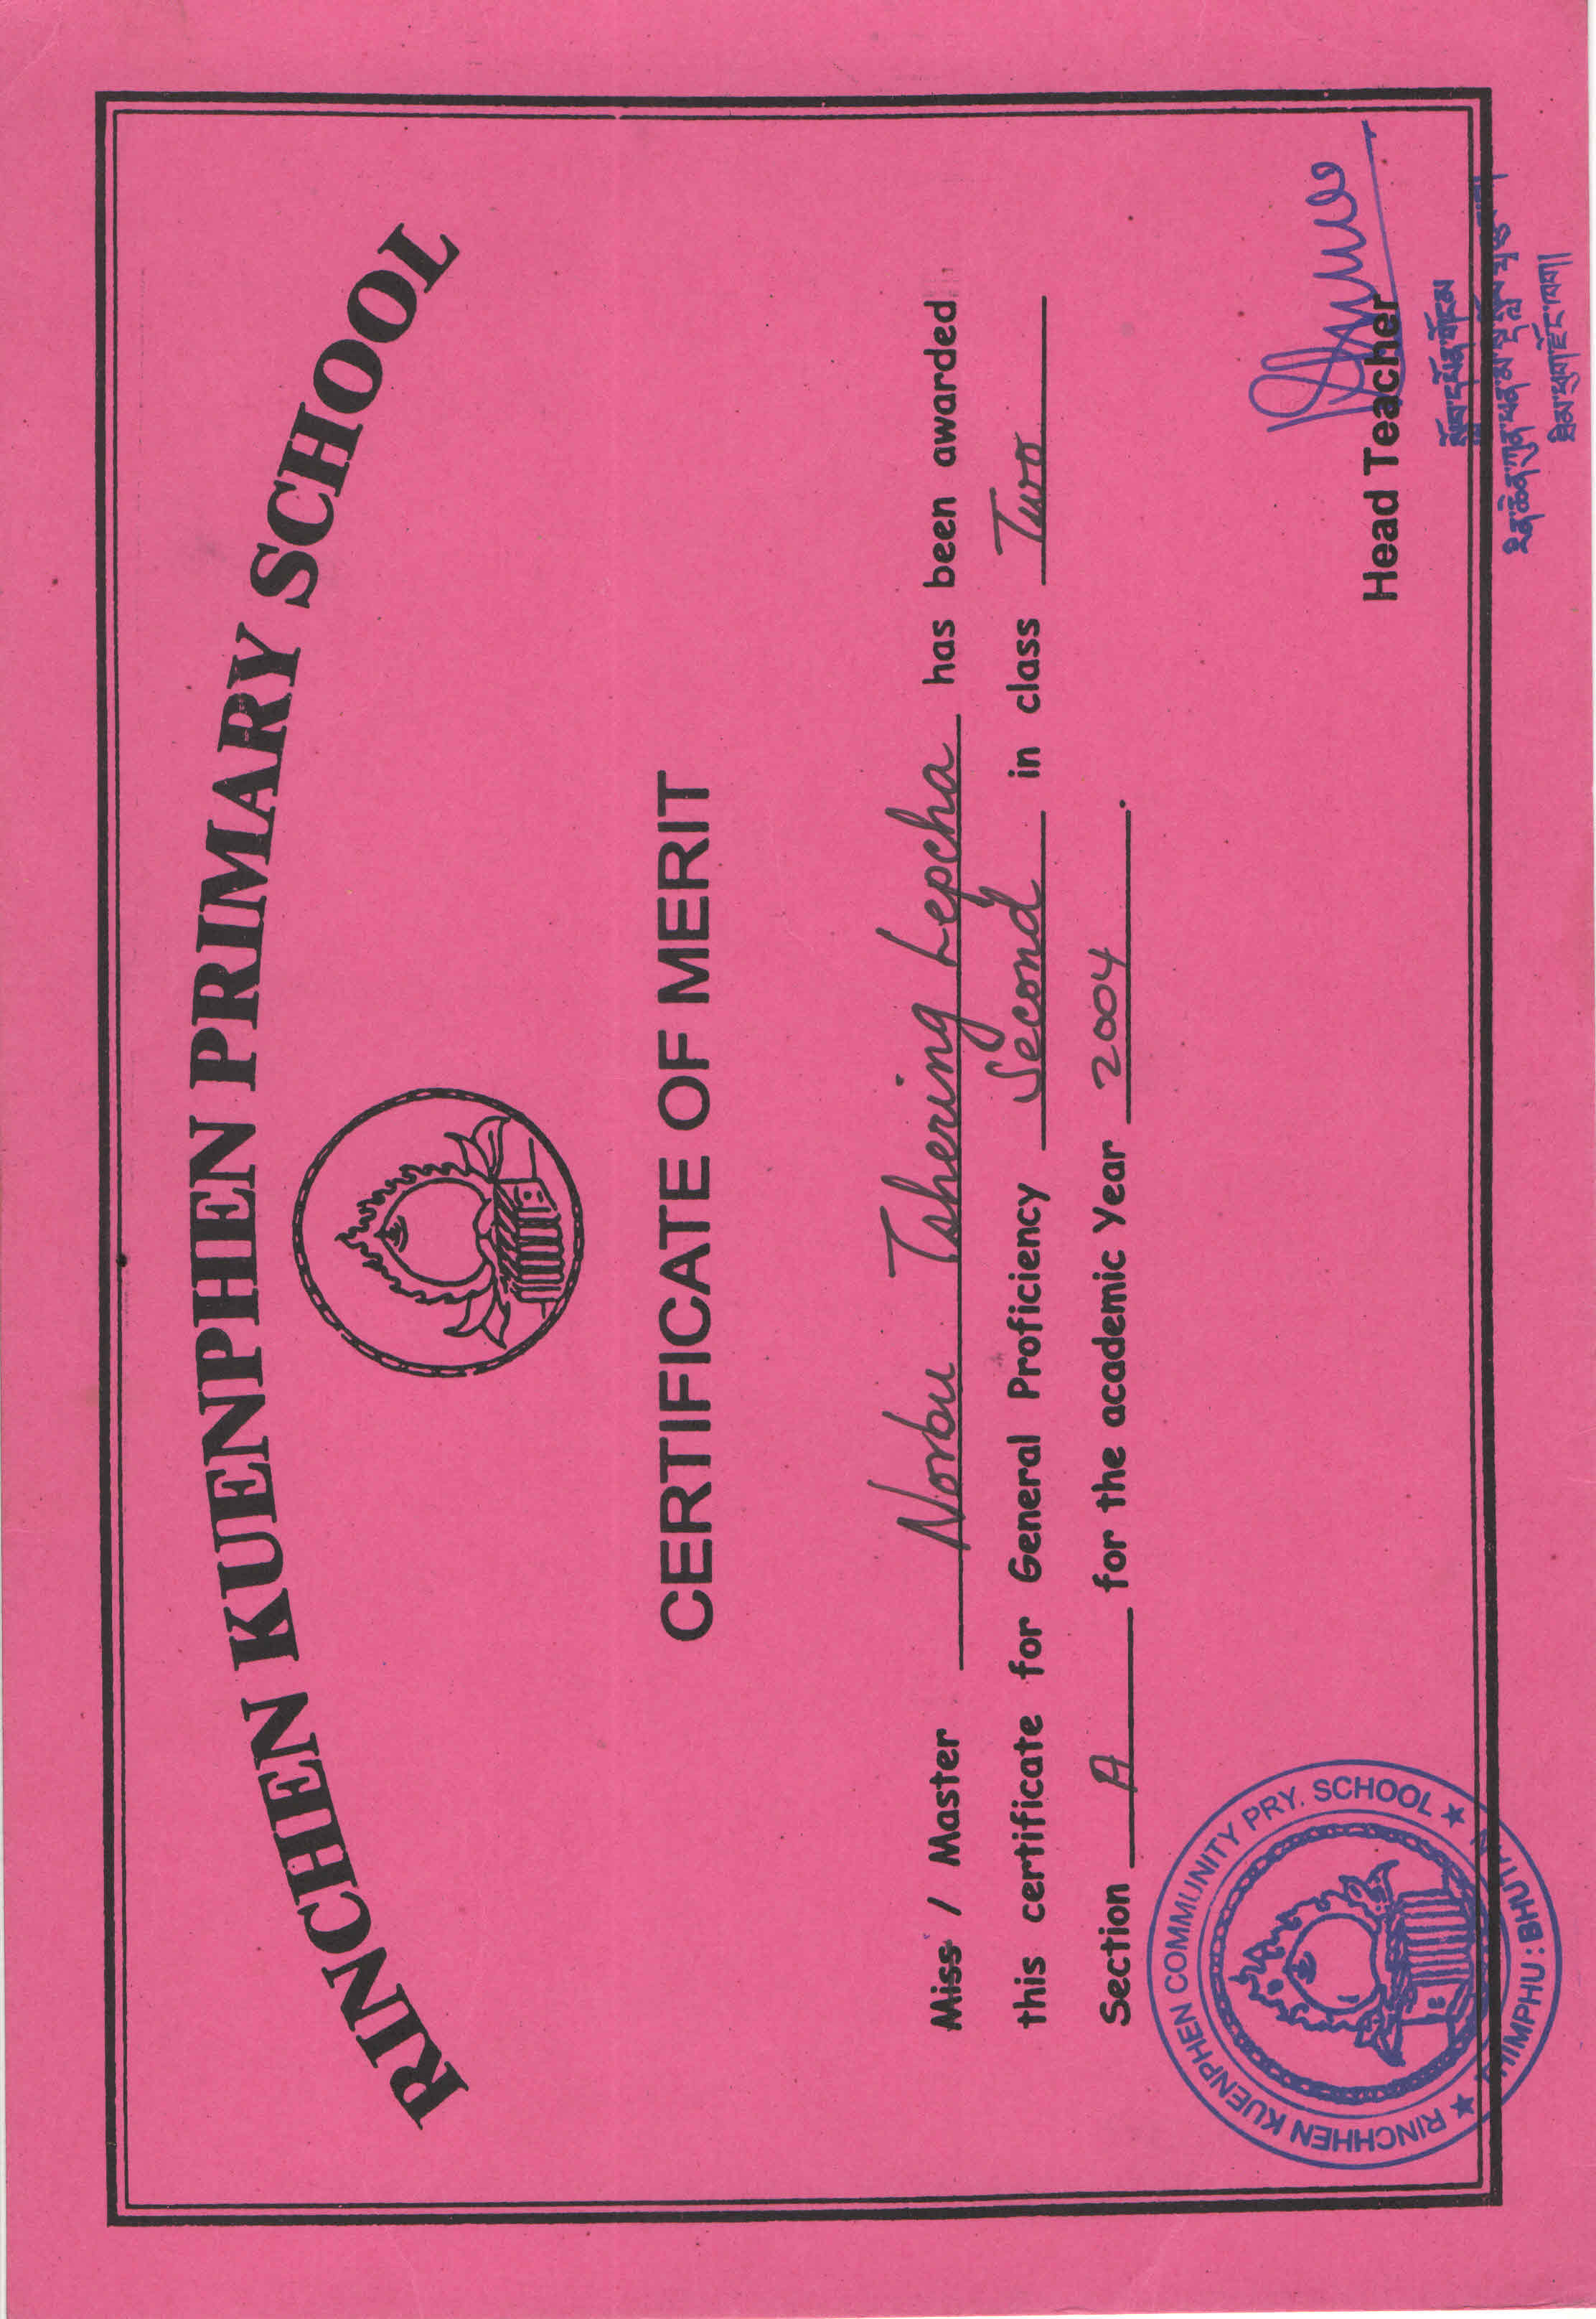 RINCHEN KUENPHEN PRIMARY SCHOOL
CERTIFICATE OF MERIT
Miss / Master Norbu Tshering Lepcha has been awarded
this certificate for General Proficiency Second in class Two
Section A for the academic Year 2004.
RINCHHEN KUENPHEN COMMUNITY PRY. SCHOOL
THIMPHU : BHUTAN
Head Teacher
སློབ་དཔོན་གོངམ
རིན་ཆེན་ཀུན་ཕན་མི་སྡེ་སློབ་གྲྭ་
ཐིམ་ཕུག་རྫོང་ཁག།